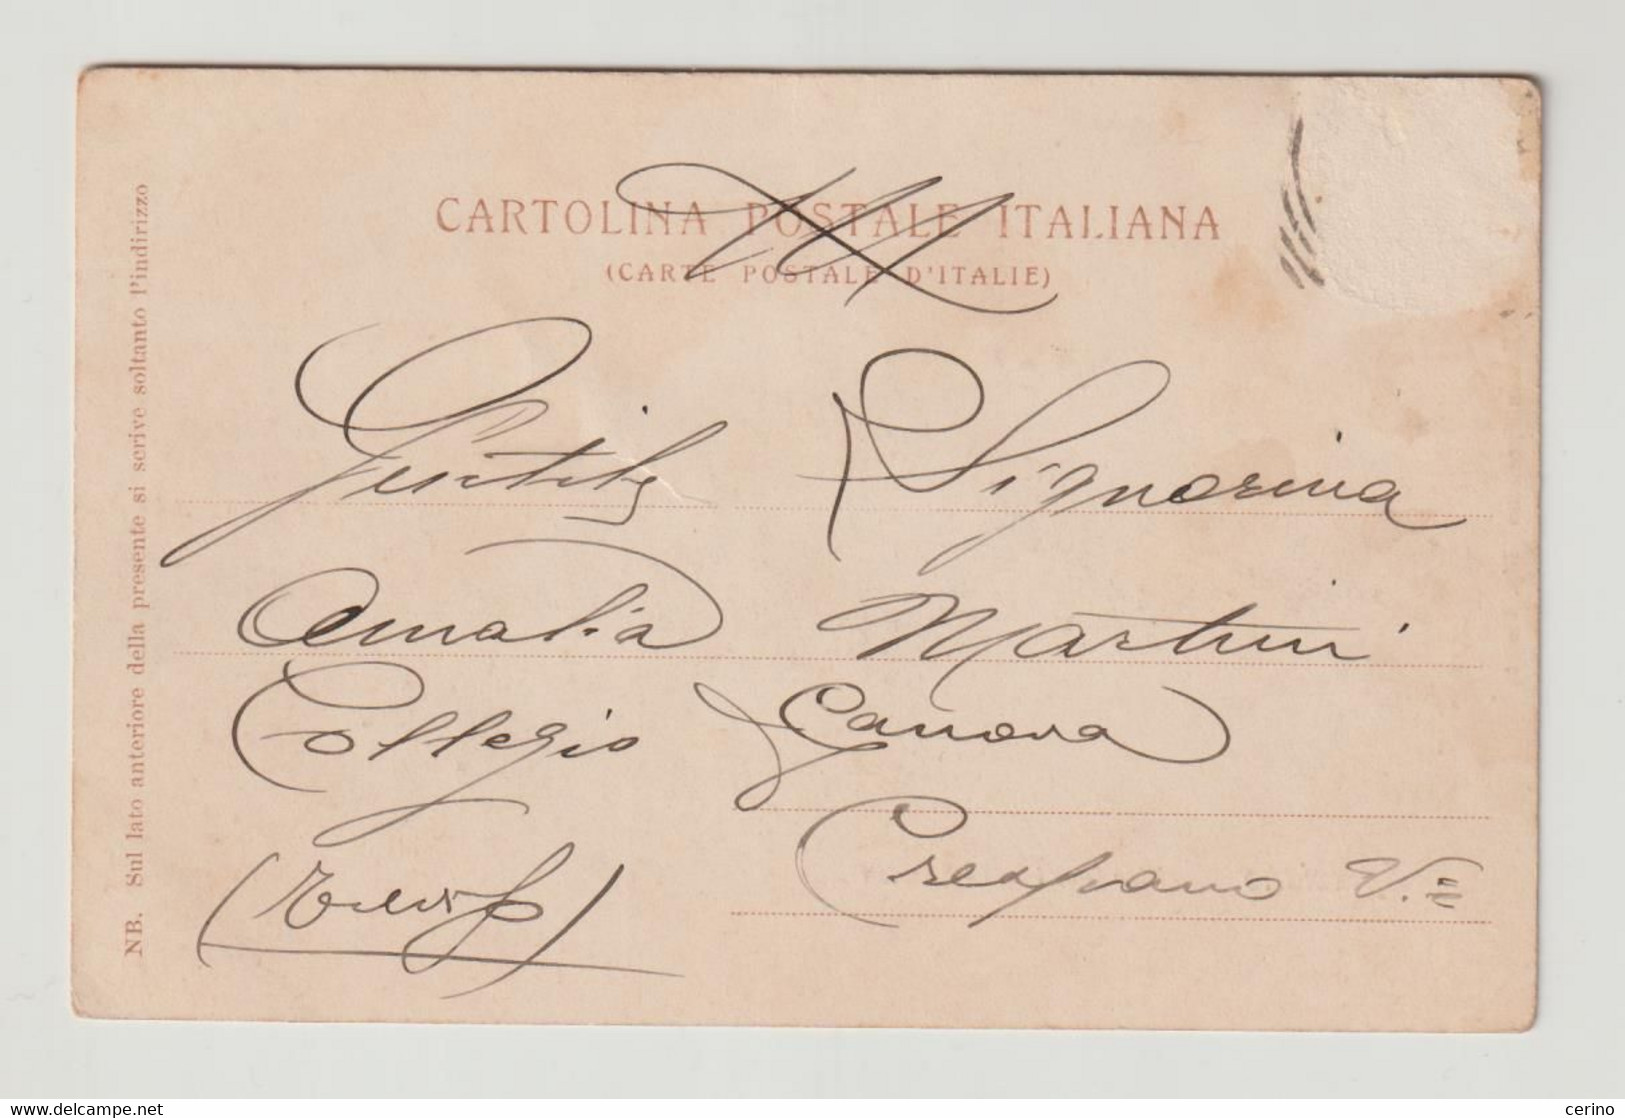 CARTOLINA POSTALE ITALIANA
(CARTE POSTALE D'ITALIE)
Signorina
Amalia Martini
Collegio Canova
Crespano V.
NB. Sul lato anteriore della presente si scrive soltanto l'indirizzo
delcampe.net
cerino